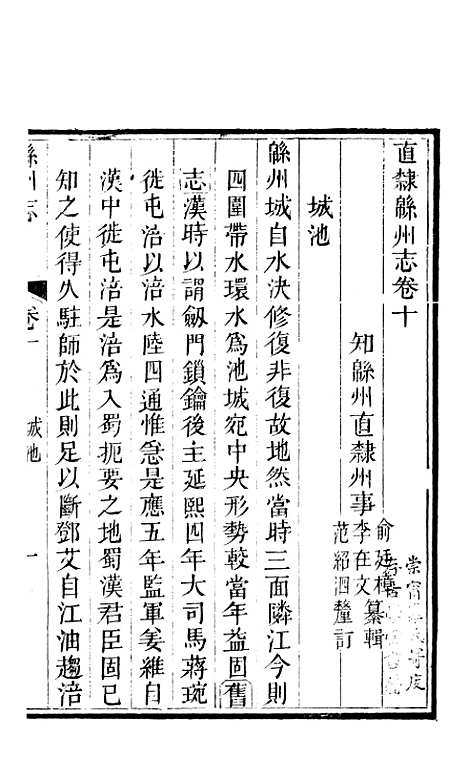 直隸緜州志卷十
知緜州直隸州事
李在文纂輯
范紹泗釐訂
城池
緜州城自水決修復非復故地然當時三面隣江今則
四圍帶水環水爲池城宛中央形勢較當年益固舊
志漢時以謂劔門鎖鑰後主延熙四年大司馬蔣琬
徙屯涪以涪水陸四通惟急是應五年監軍姜維自
漢中徙屯涪是涪爲入蜀扼要之地蜀漢君臣固已
知之使得久駐師於此則足以斷鄧艾自江油趨涪
緜州志
城池
一